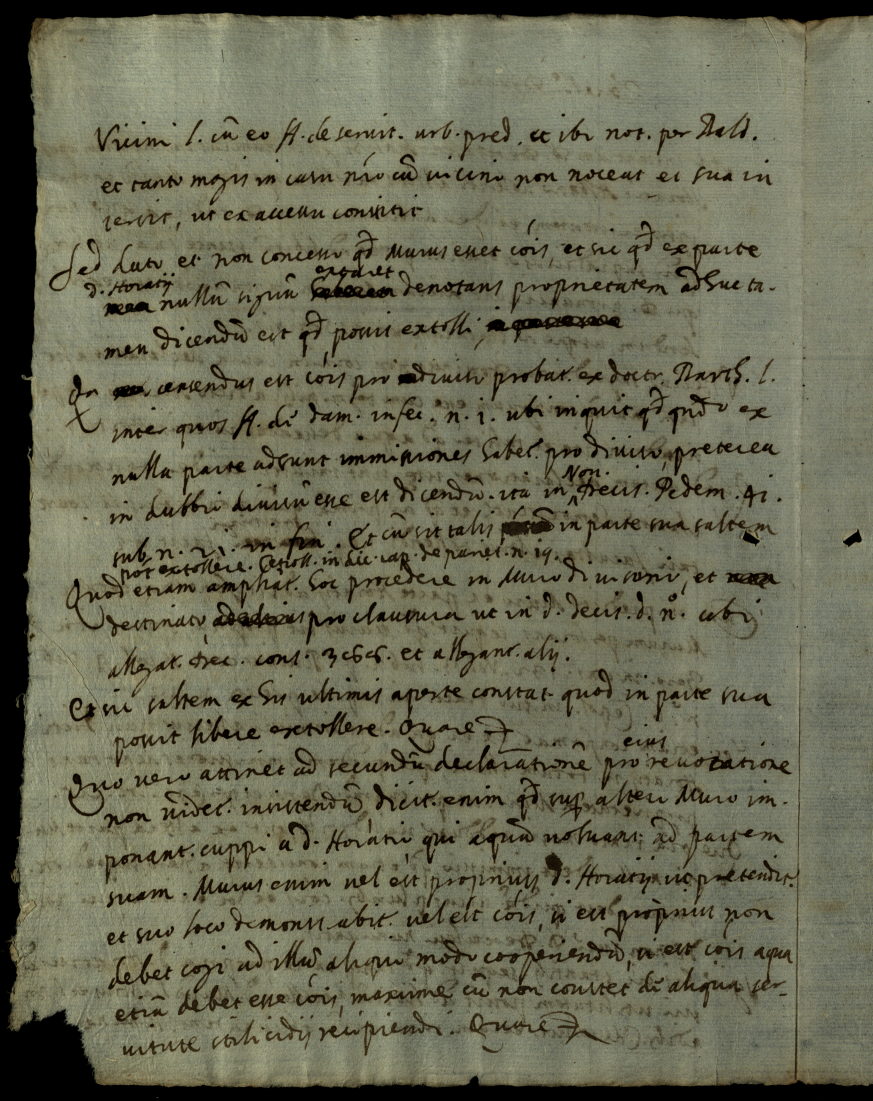 Vicini l. cũ eo ff. de servit. urb. pred. et ibi not. per Bald.
et tanto magis in casu nr̃o cũ vicino non noceat et sua in
tersit, ut ex accessu constitit
Sed dato et non concesso qd̃ Murus esset cõis, et sic qd̃ ex parte
d. Horatij nullũ signũ extaret denotans proprietatem adhuc ta-
men dicendũ est qd̃ possit extolli
censendus est cõis pro diviso probat. ex doctr. Barth. l.
inter quos ff. de dam. infec. n. 1. ubi inquit qd̃ qñdo ex
nulla parte adsunt immissiones habet. pro diviso, preterea
in dubbio divisũ esse est dicendũ. ita in Non. decis. Pedem. 41.
sub. n. 21. in fin. Et cũ sit talis in parte sua saltem
põt extollere. in sic. cap. de pariet. n. 19.
Quod etiam ampliat. hoc procedere in Muro divisorio, et
destinato pro clausura ut in d. decis. d. nº. ubi
allegat. cons. 366. et allegant. alij.
Et sic saltem ex his ultimis aperte constat quod in parte sua
possit libere extollere. Quare
Quo vero attinet ad secundũ declarationẽ pro eius revocatione
non videt. insistendũ, dicit. enim qd̃ sup. altero Muro im-
ponant. cuppi a d. Horatio qui aquã volvant ad partem
suam. Murus enim vel est proprius d. Horatij ut pretendit.
et suo loco demonstrabit. vel est cõis, si est proprius non
debet cogi ad illũ aliquo modo cooperiendũ, si est cõis aqua
etiã debet esse cõis, maxime cũ non constet de aliqua ser-
vitute stilicidij recipiendi. Quare